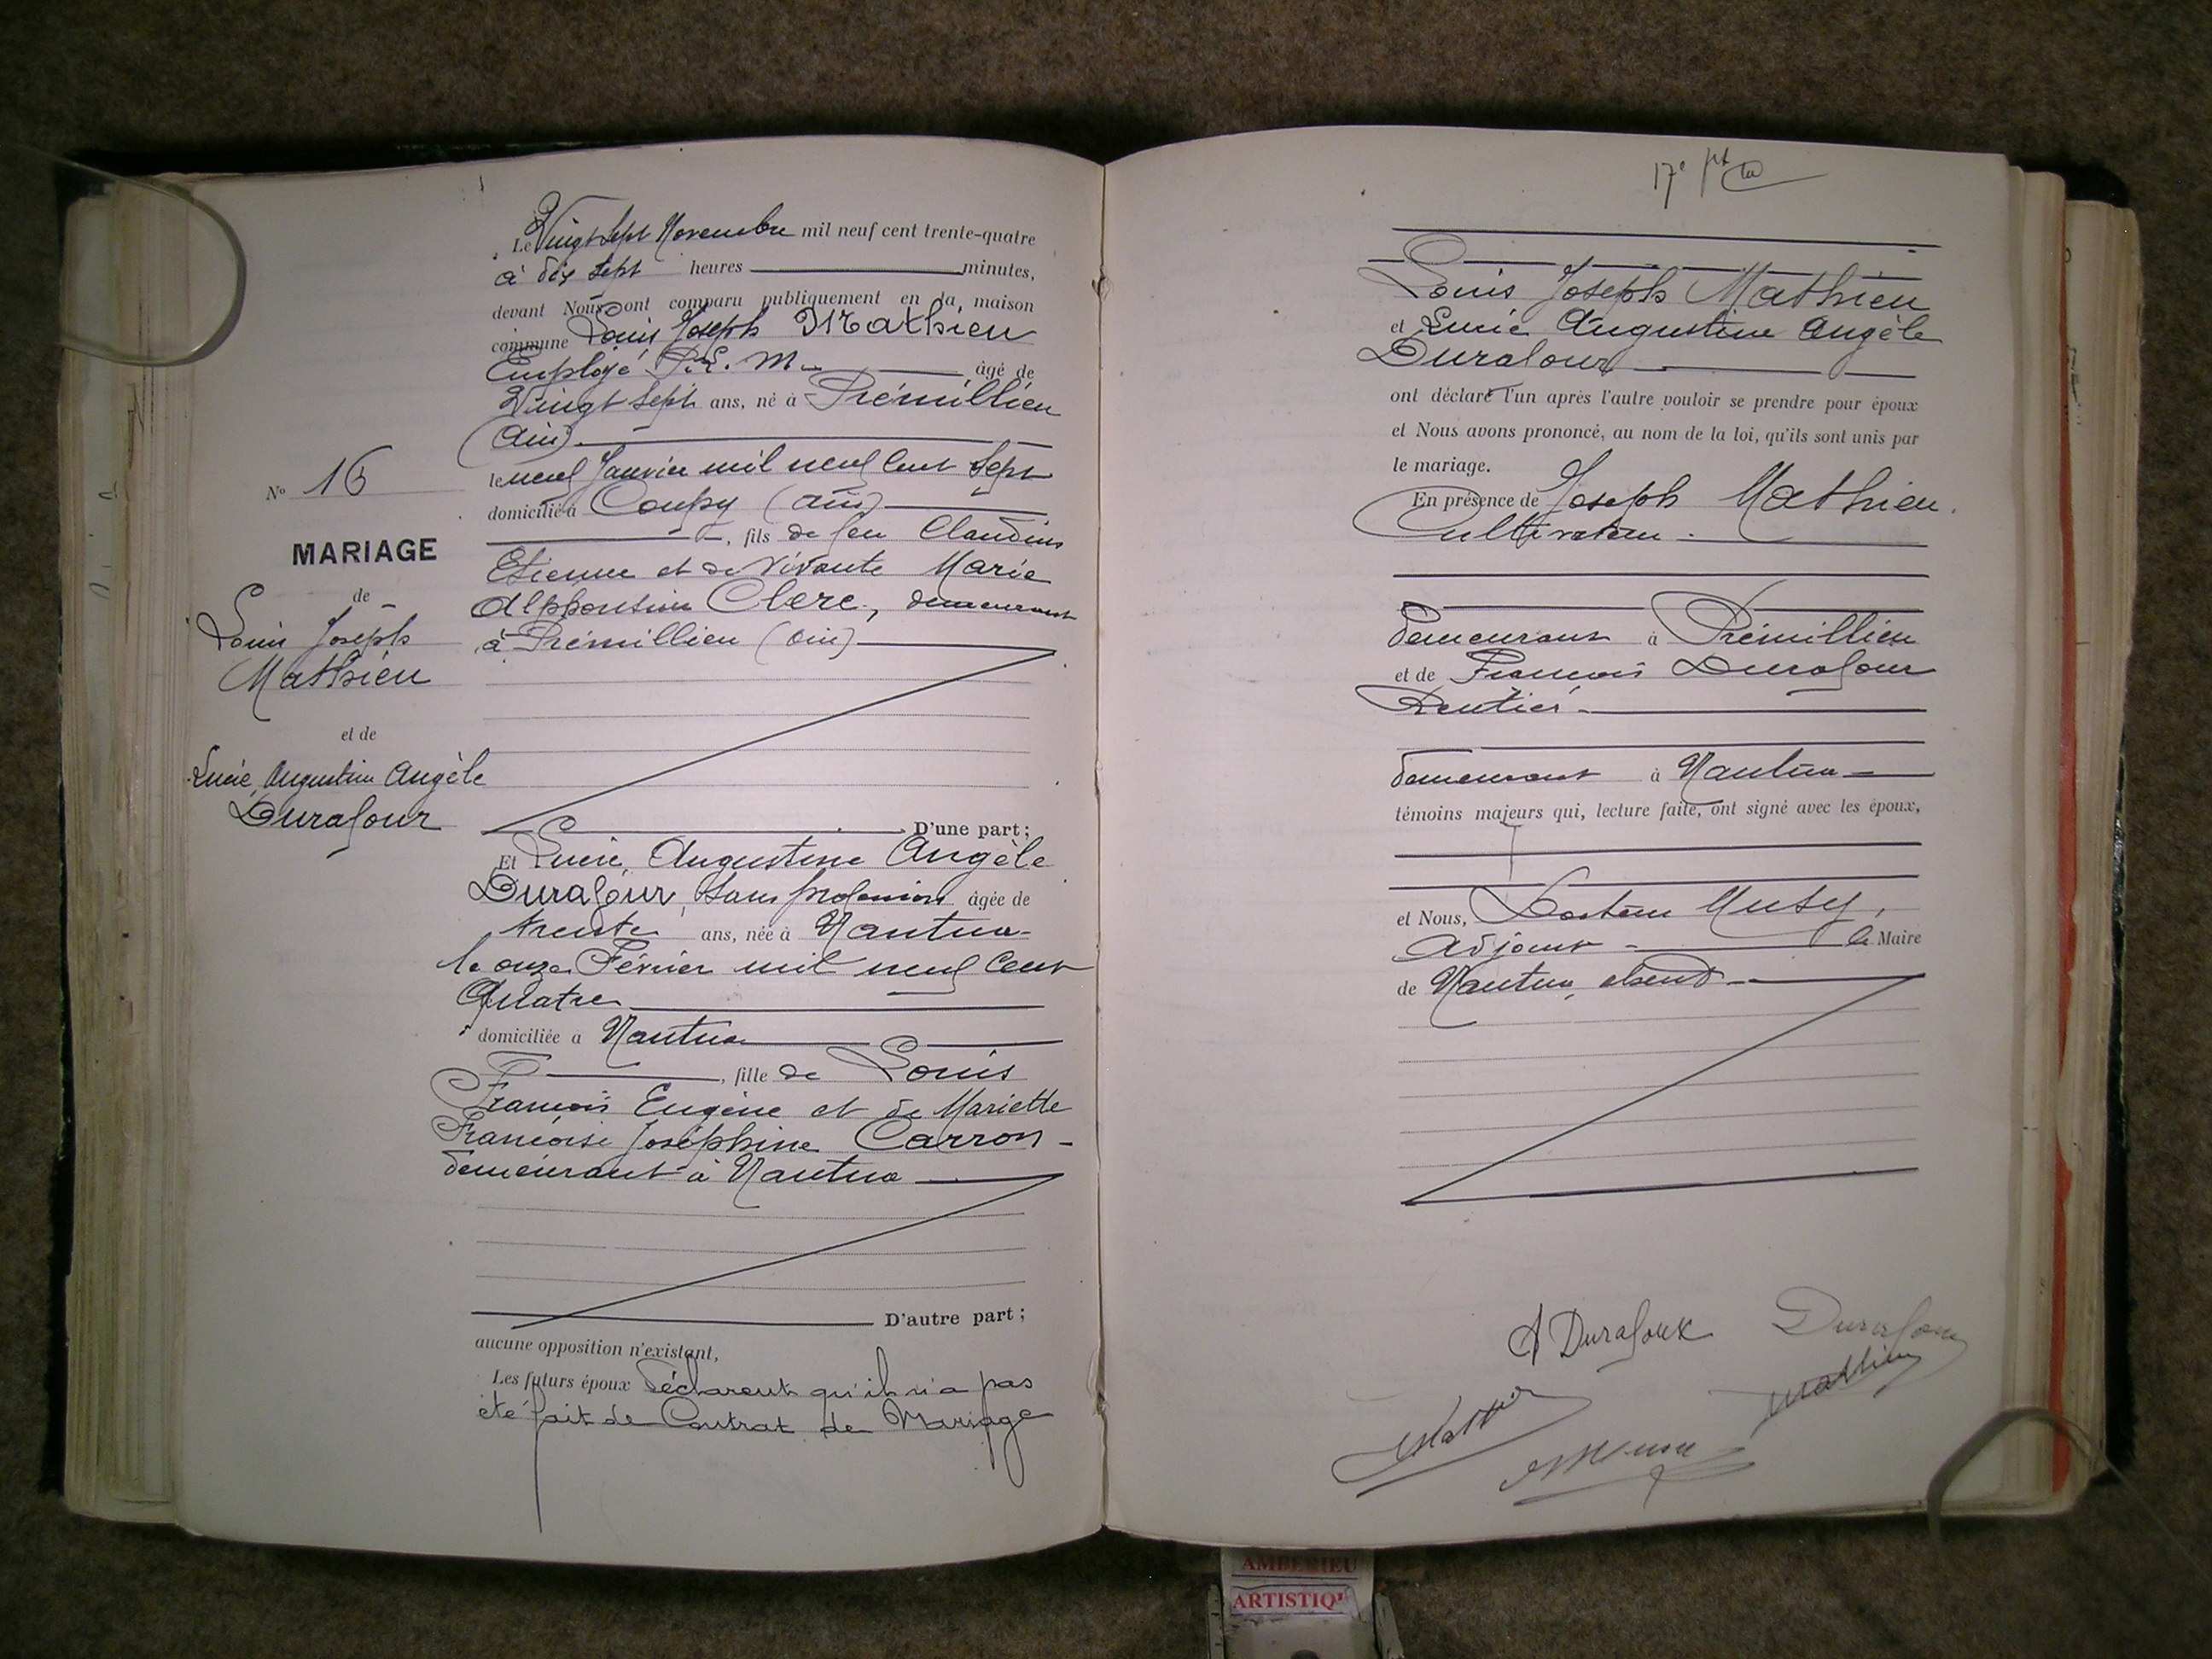 Le Vingt Sept Novembre mil neuf cent trente-quatre
à dix sept heures minutes,
devant Nous ont comparu publiquement en la maison
commune Louis Joseph Mathieu
Employé P.L.M. âgé de
Vingt sept ans, né à Prémillieu
(Ain)
le neuf Janvier mil neuf cent sept
domicilié à Coupy (Ain)
, fils de feu Claudius
Etienne et de vivante Marie
Alphonsine Clerc, demeurant
à Prémillieu (Ain)
D'une part;
Et Lucie, Augustine Angèle
Durafour, sans profession âgée de
trente ans, née à Nantua
le onze Février mil neuf cent
Quatre
domiciliée à Nantua
, fille de Louis
François Eugène et de Mariette
Françoise Joséphine Carron
demeurant à Nantua
D'autre part;
aucune opposition n'existant,
Les futurs époux déclarent qu'il n'a pas
été fait de Contrat de Mariage
No 16
MARIAGE
de
Louis Joseph
Mathieu
et de
Lucie, Augustine Angèle
Durafour
17e
Louis Joseph Mathieu
et Lucie Augustine Angèle
Durafour
ont déclaré l'un après l'autre vouloir se prendre pour époux
et Nous avons prononcé, au nom de la loi, qu'ils sont unis par
le mariage.
En présence de Joseph Mathieu.
Cultivateur
demeurant à Prémillieu
et de François Durafour
Rentier
demeurant à Nantua
témoins majeurs qui, lecture faite, ont signé avec les époux,
et Nous, Musy,
Adjoint le Maire
de Nantua, absent
A Durafour Durafour
Mathieu
AMBERIEU
ARTISTIQ